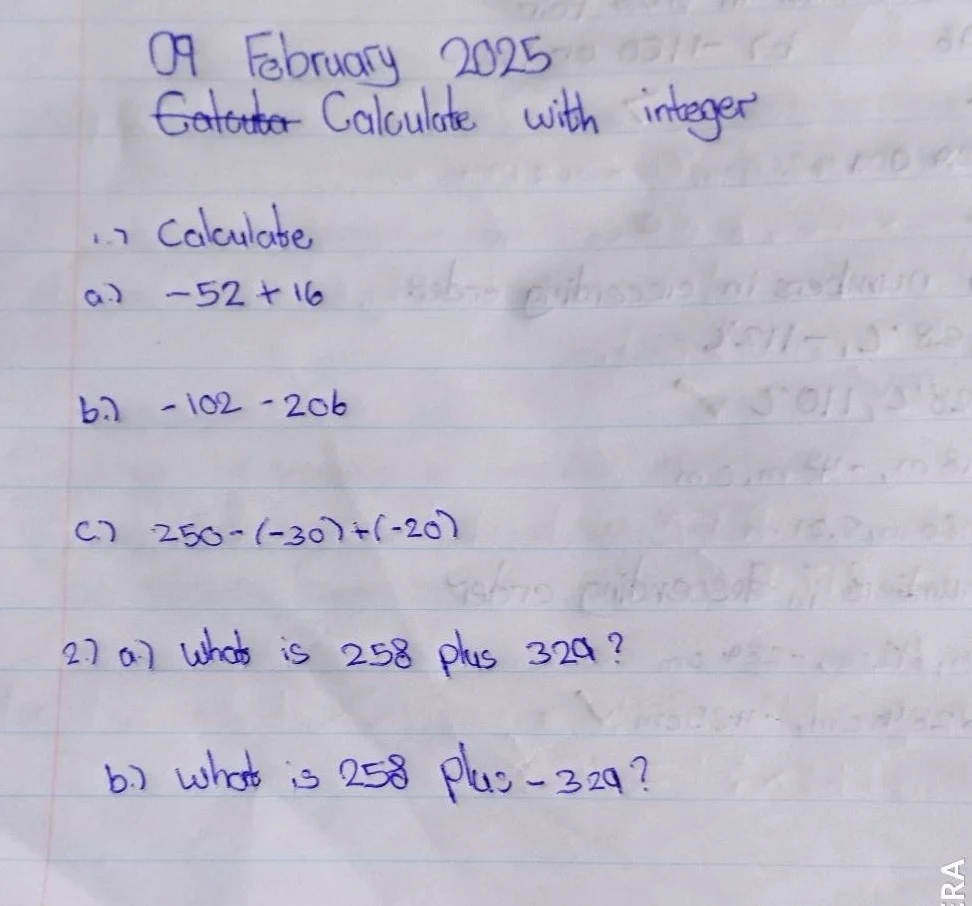 09 February 2025
Calculate with integer
1.) Calculate
a.) -52 + 16
b.) -102 - 206
c.) 250 - (-30) + (-20)
2.) a.) What is 258 plus 329?
b.) What is 258 plus - 329?
ERA